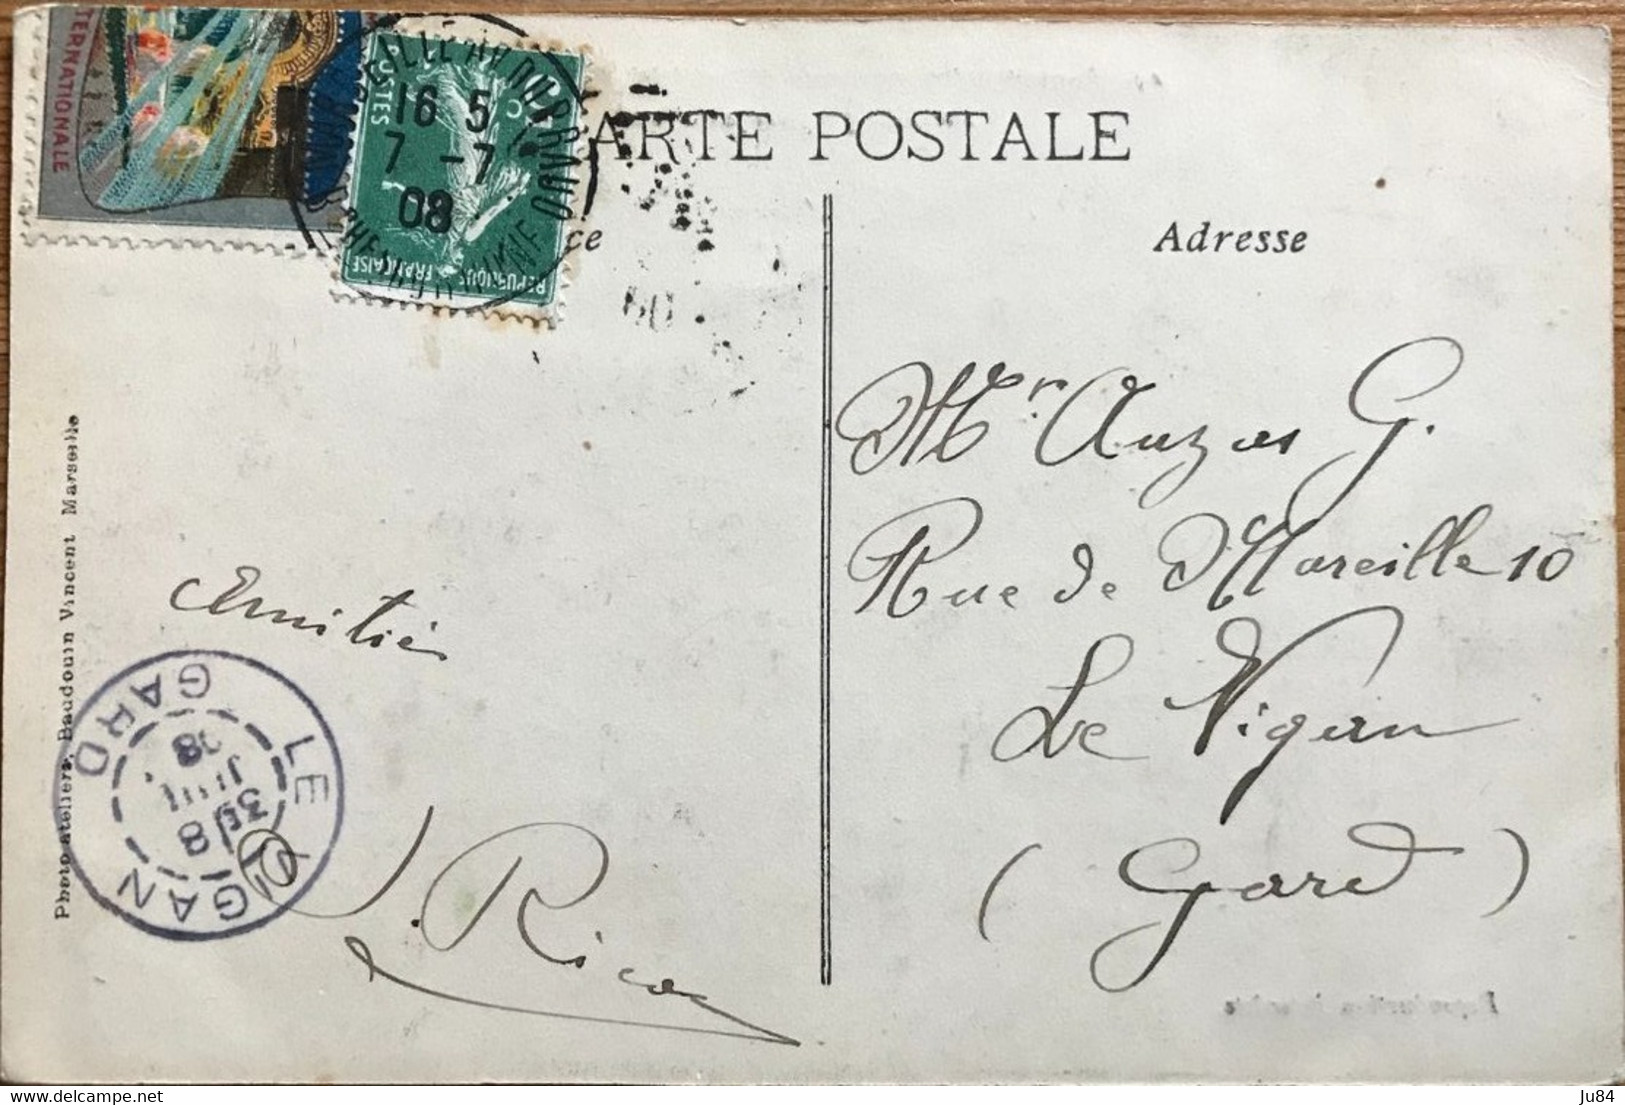 CARTE POSTALE
Adresse
TERNATIONALE
POSTES
REPUBLIQUE FRANÇAISE
16 5
7 - 7
08
Mr Auzas G.
Rue de Mareille 10
Le Vigan
(Gard)
Amitiés
J. Ricas
LE VIGAN
GARD
8
JUIL
08
Photo ateliers, Baudouin Vincent Marseille
delcampe.net
Ju84